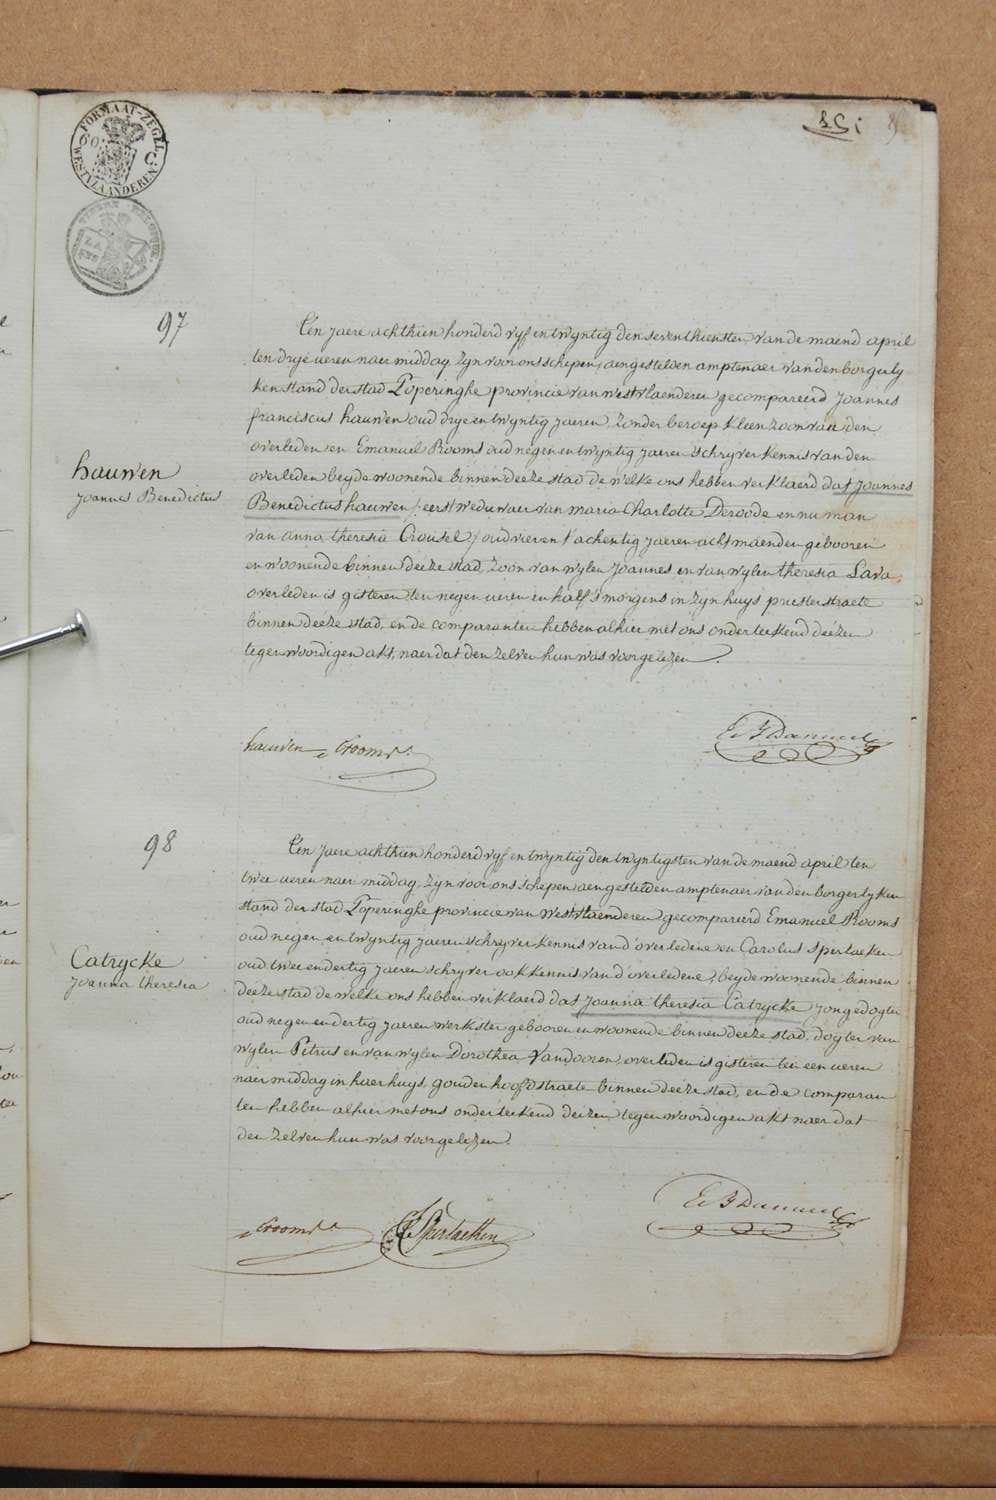 FORMAAT-ZEGEL
60 C
WESTVLAANDEREN
97
Een jaere achthien honderd vyf en twyntig den seventhienste, van de maend april
ten drye ueren naer middag, zyn voor ons schepen, aengestelden amptenaer van den borgerly
ken stand der stad Poperinghe provincie van westvlaenderen gecompareerd Joannes
franciscus hauwen oud drye en twyntig jaeren, zonder beroep kleenzoon van den
overleden en Emanuel Rooms oud negen en twyntig jaeren schryver kennis van den
overleden beyde woonende binnen deeze stad de welke ons hebben verklaerd dat Joannes
Benedictus hauwen /: eerst weduwaer van maria Charlotte Deroode en nu man
van anna theresia Crousel :/ oud vier en t'achentig jaeren acht maenden gebooren
en woonende binnen deeze stad, zoon van wylen Joannes en van wylen theresia Lava,
overleden is gisteren ten negen ueren en half s'morgens in zyn huys priesterstraete
binnen deeze stad, en de comparanten hebben alhier met ons onderteekend deezen
tegenwoordigen akt, naer dat den zelven hun was voorgelezen.
hauwen
Joannes Benedictus
hauwen Erooms
98
Een jaere achthien honderd vyf en twyntig den twyntigsten van de maend april ten
twee ueren naer middag, zyn voor ons schepen aengestelden amptenaer van den borgerlyken
stand der stad Poperinghe provincie van Westvlaenderen gecompareerd Emanuel Rooms
oud negen en twyntig jaeren schryver kennis van d'overledene en Carolus Spertaeken
oud twee en dertig jaeren schryver ook kennis van d'overledene, beyde woonende binnen
deeze stad de welke ons hebben verklaerd dat Joanna theresia Catrycke jonge dogter
oud negen en dertig jaeren werkster gebooren en woonende binnen deeze stad, dogter van
wylen Pitrus en van wylen Dorothea Vandooren, overleden is gisteren ten een ueren
naer middag in haer huys, gouden hoofdstraete binnen deeze stad, en de comparan
ten hebben alhier met ons onderteekend deezen tegenwoordigen akt naer dat
den zelven hun was voorgelezen.
Catrycke
Joanna theresia
Erooms Spertaeken